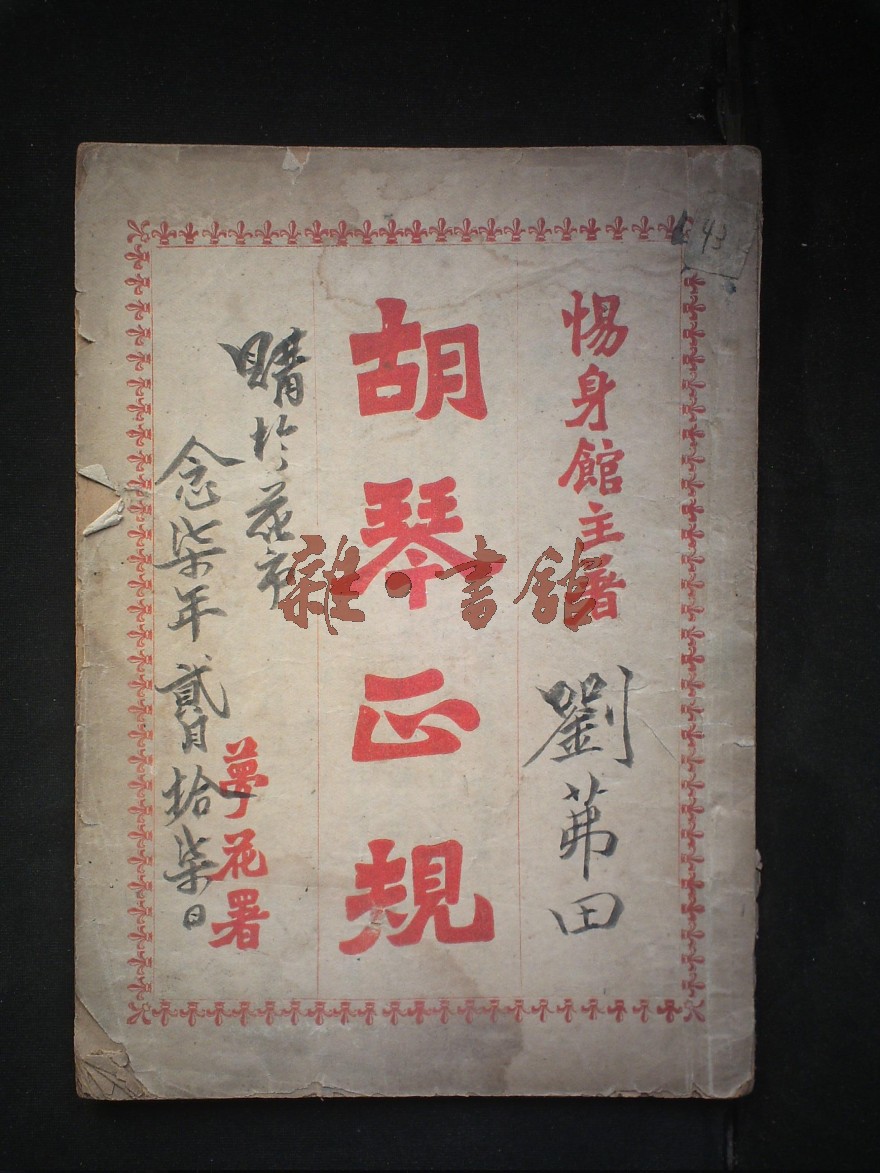 43
惕身館主署
劉茀田
胡琴正規
購於花市
夢花署
念柒年貳月拾柒日
雜·書館